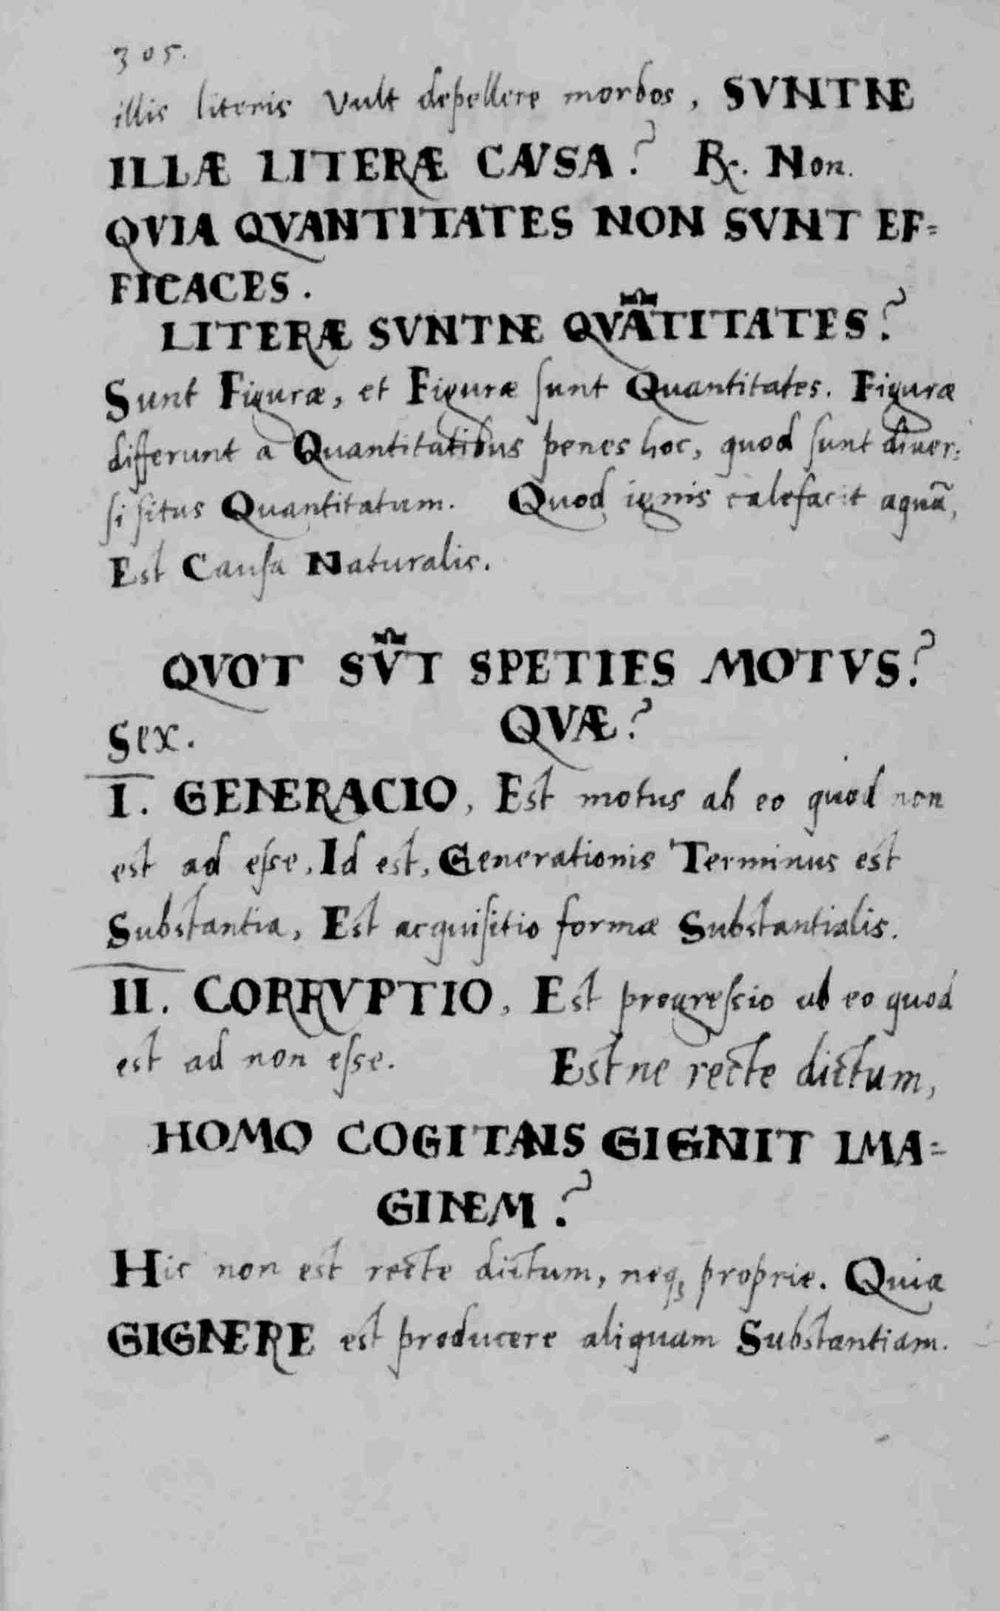 305.
illis literis vult depellere morbos, SVNTNE
ILLÆ LITERÆ CAVSA? ℞. Non.
QVIA QVANTITATES NON SVNT EF=
FICACES.
LITERÆ SVNTNE QVA᷉TITATES?
Sunt Figuræ, et Figuræ ſunt Quantitates. Figuræ
differunt a Quantitatibus penes hoc, quod ſunt diver:
ſi ſitus Quantitatum. Quod ignis calefacit aquã,
Est Cauſa Naturalis.
QVOT SV᷉T SPETIES MOTVS?
Sex. QVÆ?
I. GENERACIO, Est motus ab eo quod non
est ad eſse, Id est, Generationis Terminus est
Substantia, Est acquiſitio formæ Substantialis.
II. CORRVPTIO, Est progreſsio ab eo quod
est ad non eſse. Estne recte dictum,
HOMO COGITANS GIGNIT IMA=
GINEM?
Hic non est recte dictum, neq; proprie. Quia
GIGNERE est producere aliquam Substantiam.